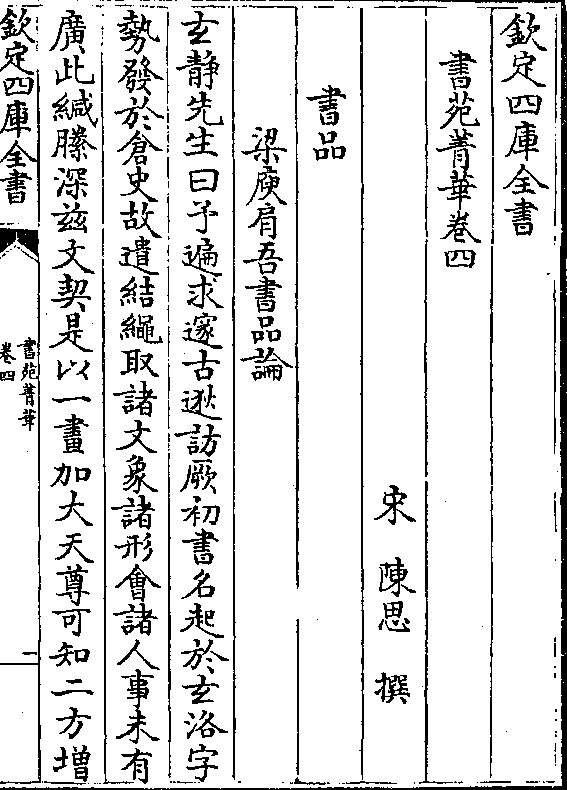 欽定四庫全書
書苑菁華卷四
宋 陳思 撰
書品
梁庾肩吾書品論
玄静先生曰予遍求邃古逖訪厥初書名起於玄洛字
勢發於倉史故遣結繩取諸文象諸形會諸人事未有
廣此緘縢深兹文契是以一畫加大天尊可知二方增
欽定四庫全書
書苑菁華
卷四
一